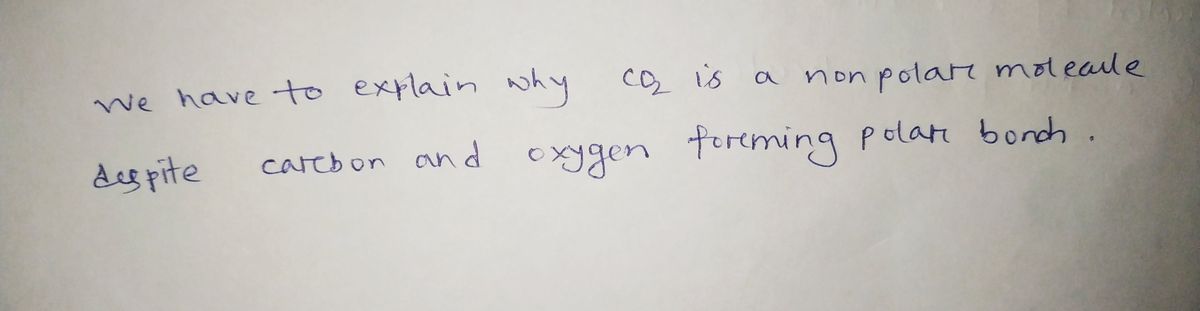 We have to explain why CO2 is a non polar molecule
despite carbon and oxygen forming polar bonds.